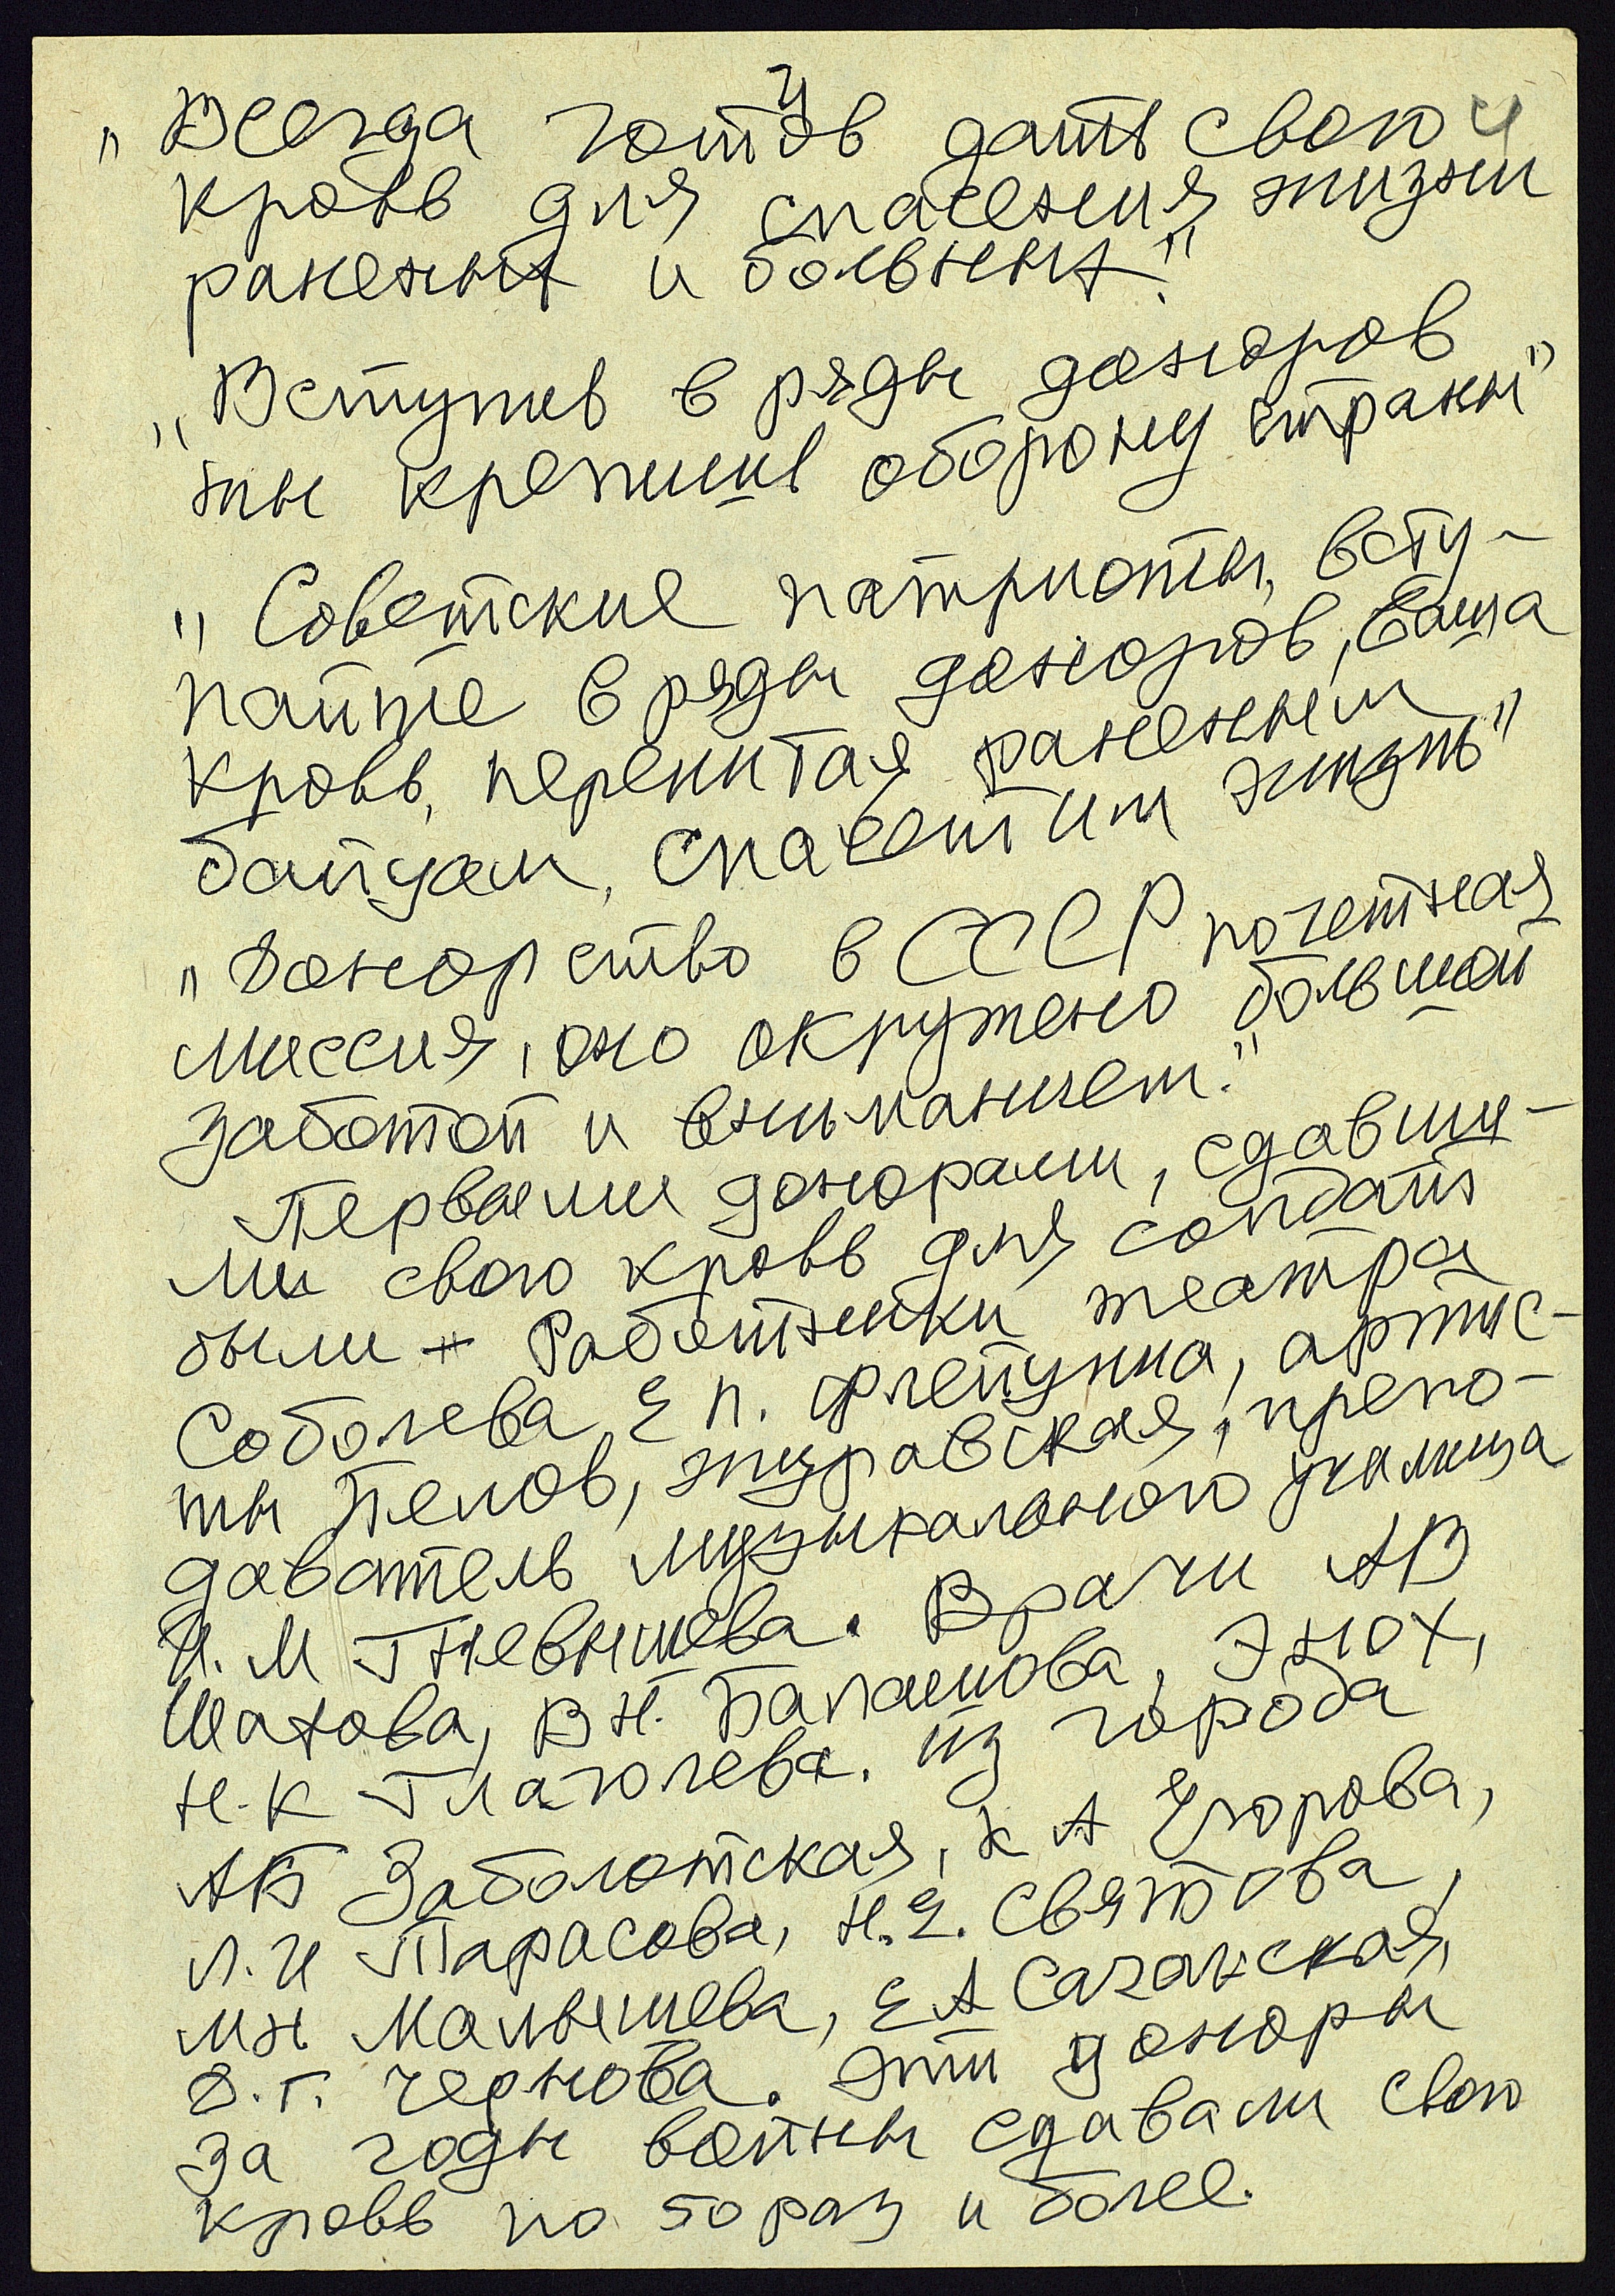 4
„Всегда готов дать свою 4
кровь для спасения жизни
раненых и больных."
„Вступив в ряды доноров
ты крепишь оборону страны"
„Советские патриоты, всту-
пайте в ряды доноров, ваша
кровь, перелитая раненым
бойцам, спасет им жизнь"
„Донорство в СССР почетная
миссия, оно окружено большой
заботой и вниманием."
Первыми донорами, сдавши-
ми свою кровь для солдат
были – Работники театра
Соболева, Е П. артис-
ты Белов, Журавская, препо-
даватель музыкального училища
И. М Гневышева. Врачи АВ
Шахова, В Н. Балашова, Энох,
Н.К Глаголева. Из города
АБ Заболотская, К А Егорова,
Л.И Тарасова, Н.Е. Святова,
МН Малышева, ЕА Сачанская,
З.Г. Чернова. Эти доноры
за годы войны сдавали свою
кровь по 50 раз и более.